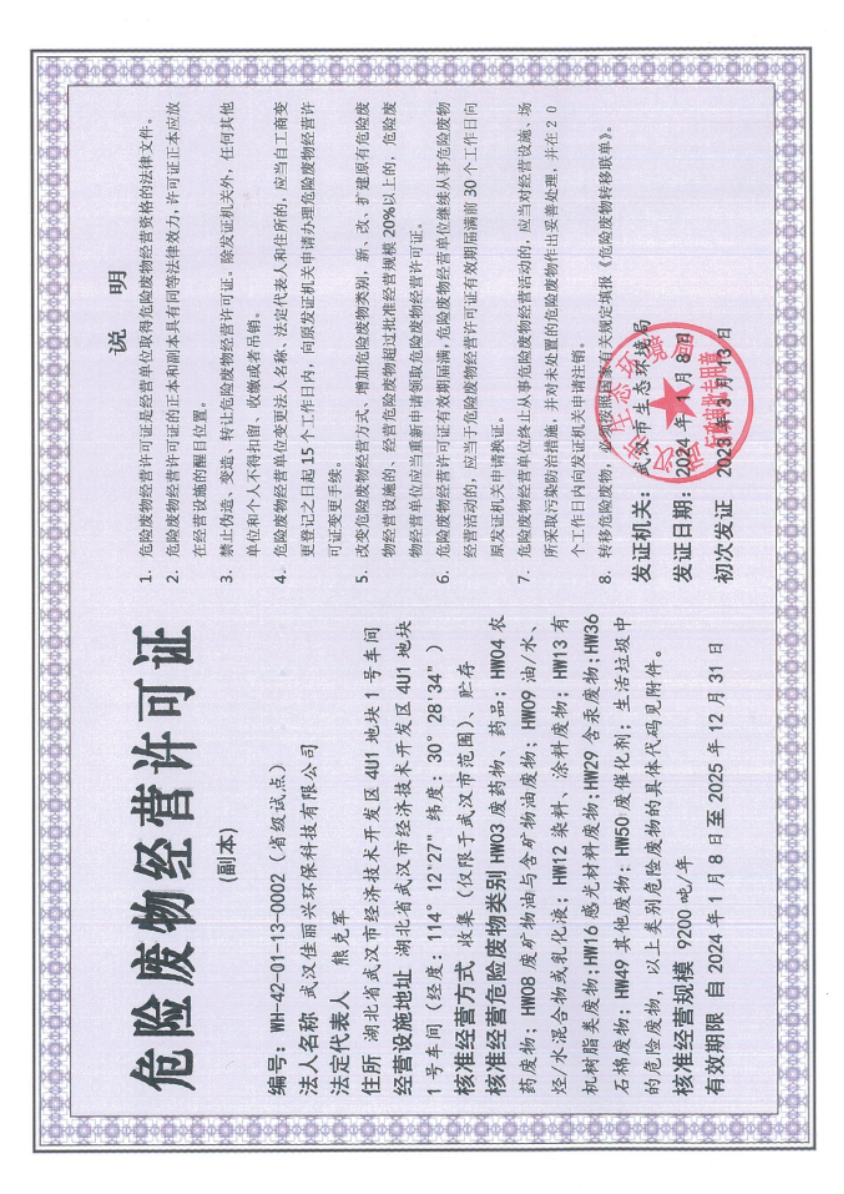 危险废物经营许可证
(副本)
编号：WH-42-01-13-0002（省级试点）
法人名称 武汉佳丽兴环保科技有限公司
法定代表人 熊克军
住所 湖北省武汉市经济技术开发区4U1地块1号车间
经营设施地址 湖北省武汉市经济技术开发区4U1地块
1号车间（经度：114°12'27" 纬度：30°28'34"）
核准经营方式 收集（仅限于武汉市范围）、贮存
核准经营危险废物类别 HW03废药物、药品；HW04农
药废物；HW08废矿物油与含矿物油废物；HW09油/水、
烃/水混合物或乳化液；HW12染料、涂料废物；HW13有
机树脂类废物;HW16感光材料废物;HW29含汞废物;HW36
石棉废物；HW49其他废物；HW50废催化剂；生活垃圾中
的危险废物，以上类别危险废物的具体代码见附件。
核准经营规模 9200吨/年
有效期限 自2024年1月8日至2025年12月31日
说 明
1. 危险废物经营许可证是经营单位取得危险废物经营资格的法律文件。
2. 危险废物经营许可证的正本和副本具有同等法律效力，许可证正本应放
在经营设施的醒目位置。
3. 禁止伪造、变造、转让危险废物经营许可证。除发证机关外，任何其他
单位和个人不得扣留、收缴或者吊销。
4. 危险废物经营单位变更法人名称、法定代表人和住所的，应当自工商变
更登记之日起15个工作日内，向原发证机关申请办理危险废物经营许
可证变更手续。
5. 改变危险废物经营方式、增加危险废物类别，新、改、扩建原有危险废
物经营设施的、经营危险废物超过批准经营规模20%以上的，危险废
物经营单位应当重新申请领取危险废物经营许可证。
6. 危险废物经营许可证有效期届满，危险废物经营单位继续从事危险废物
经营活动的，应当于危险废物经营许可证有效期届满前30个工作日向
原发证机关申请换证。
7. 危险废物经营单位终止从事危险废物经营活动的，应当对经营设施、场
所采取污染防治措施，并对未处置的危险废物作出妥善处理，并在20
个工作日内向发证机关申请注销。
8. 转移危险废物，必须按照国家有关规定填报《危险废物转移联单》。
发证机关：武汉市生态环境局
发证日期：2024年1月8日
初次发证 2023年3月13日
武汉市生态环境局
行政审批专用章